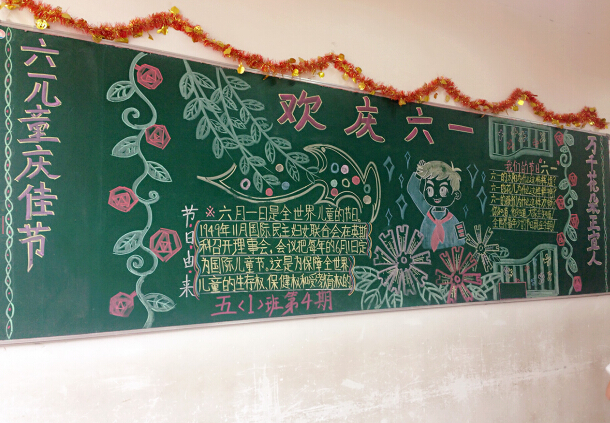 六一儿童庆佳节
欢庆六一
节日由来
※六月一日是全世界儿童的节日,
1949年11月国际民主妇女联合会在莫斯
科召开理事会,会议把每年的6月1日定
为国际儿童节,这是为保障全世界
儿童的生存权、保健权和受教育权的。
五〈1〉班第4期
我们的节日"六一"
万千花朵正宜人